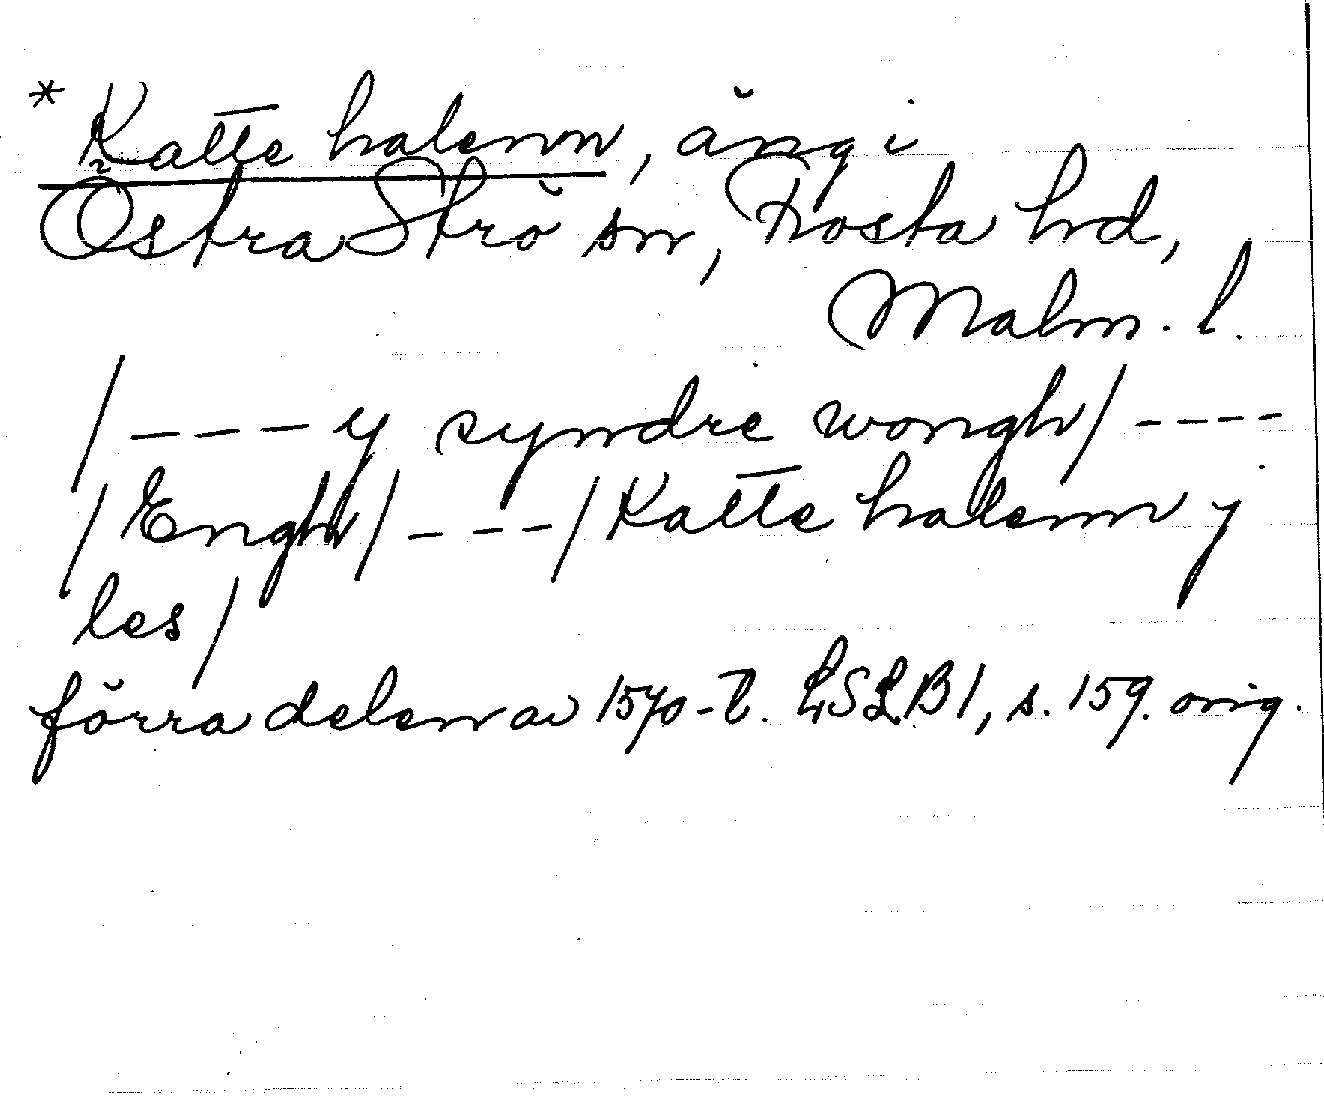 * Katte halenn, äng i
Östra Strö sn, Frosta hd,
Malm. l.
/ - - - y syndre wongh/ - - - -
/Engh/ - - - /Katte halenn y
les/
förra delen av 1570-t. LSLB1, s. 159. orig.